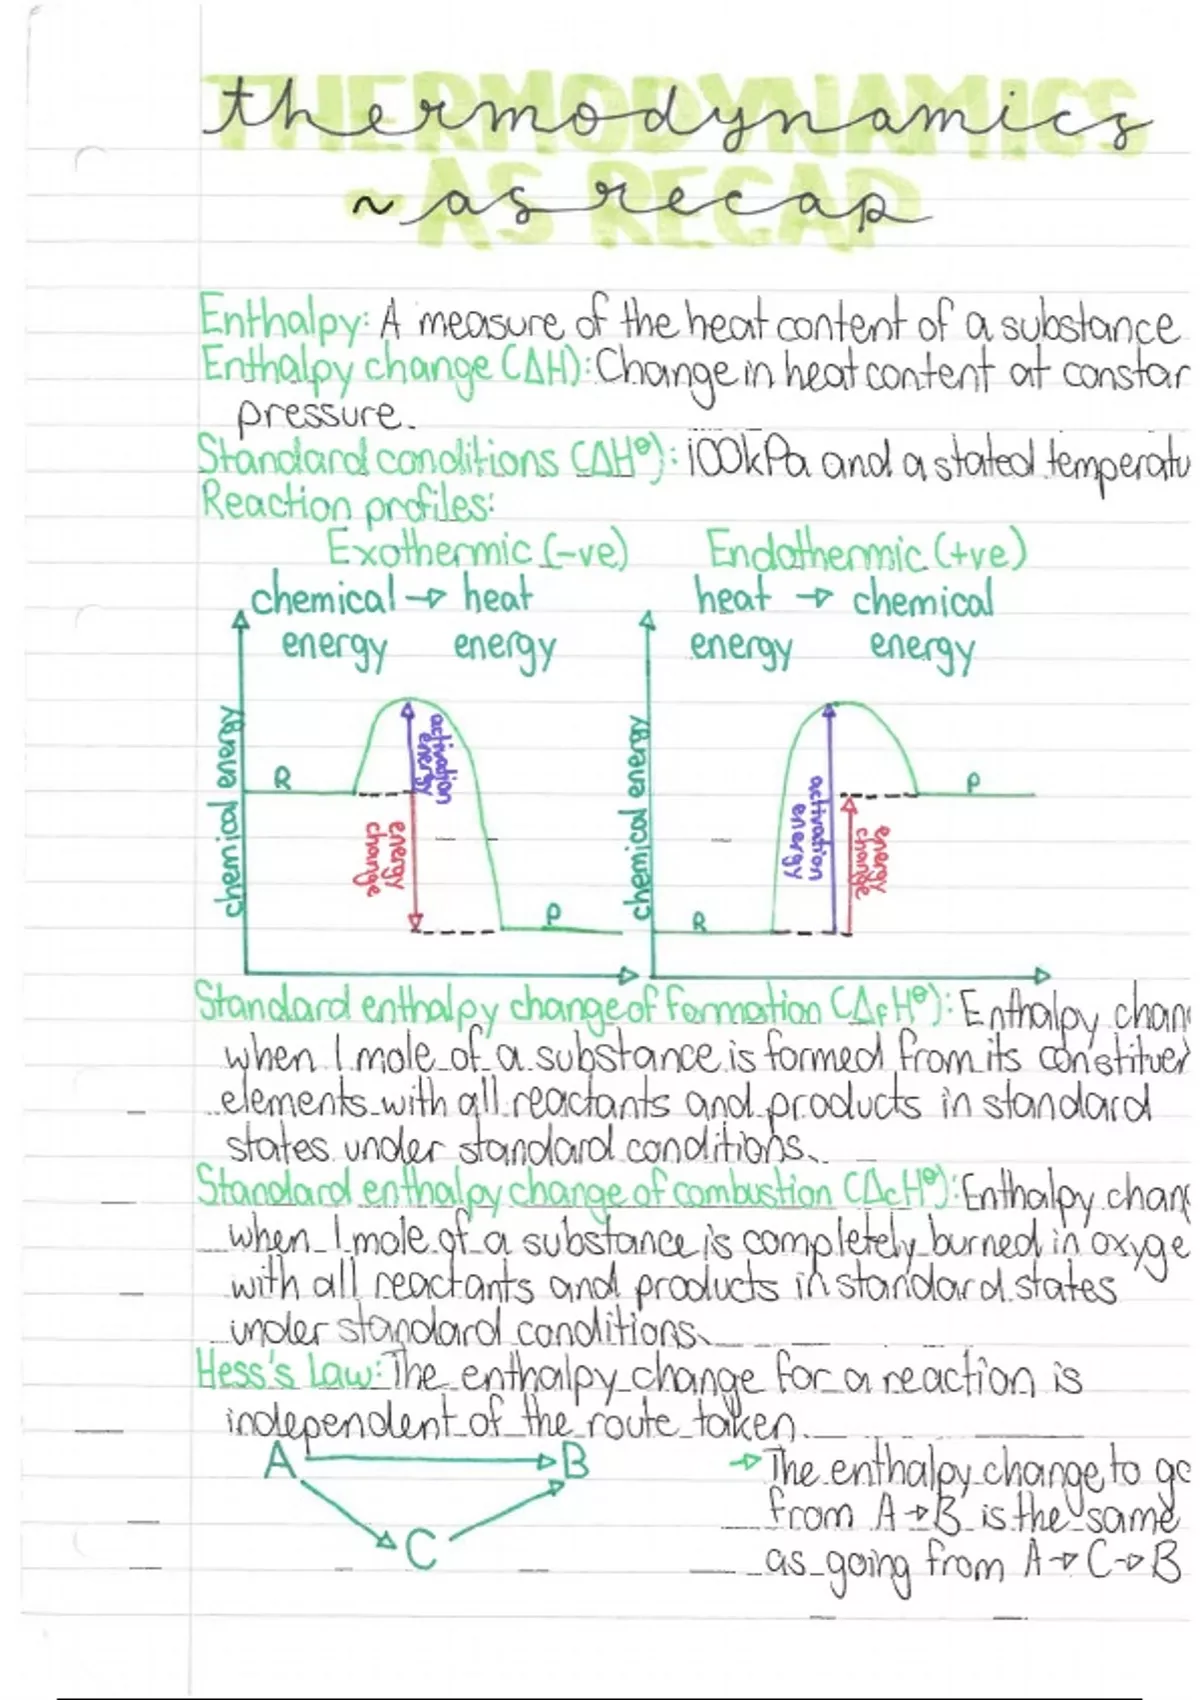 thermodynamics
THERMODYNAMICS
~as recap
AS RECAP
Enthalpy: A measure of the heat content of a substance
Enthalpy change (ΔH): Change in heat content at constan
pressure.
Standard conditions (ΔH⦵): 100kPa and a stated temperatu
Reaction profiles:
Exothermic (-ve) Endothermic (+ve)
chemical → heat heat → chemical
energy energy energy energy
chemical energy
R
activation
energy
energy
change
P
chemical energy
R
activation
energy
energy
change
P
Standard enthalpy change of formation (ΔfH⦵): Enthalpy chang
when 1 mole of a substance is formed from its constituen
elements with all reactants and products in standard
states under standard conditions.
Standard enthalpy change of combustion (ΔcH⦵): Enthalpy chang
when 1 mole of a substance is completely burned in oxyge
with all reactants and products in standard states
under standard conditions.
Hess's Law: The enthalpy change for a reaction is
independent of the route taken.
A → B → The enthalpy change to go
from A → B is the same
C as going from A → C → B